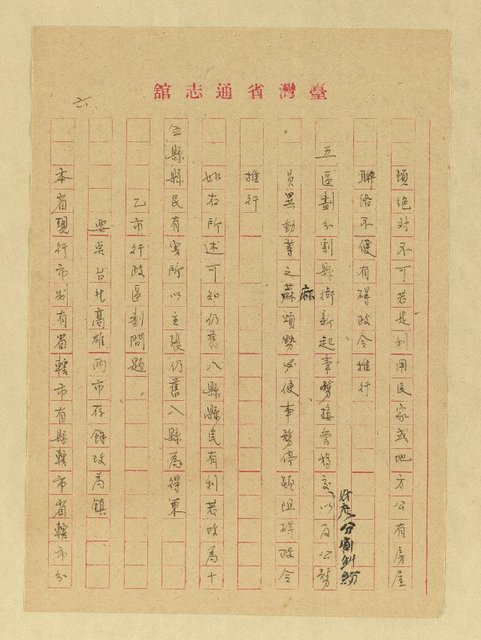 臺灣省通志館
境絕对不可若是利用民家或地方公有房屋
聯絡不便有碍政令推行
五區劃分割縣衙新起事務接管移交以及公務
財产分割糾紛
員異動等之麻煩勢必使事務停頓阻碍政令
麻
推行
如右所述可知仍舊八縣縣民有利若改為十
五縣縣民有害所以主張仍舊八縣為得策
乙市行政區劃問題。
要吳台北高雄两市存餘改為鎮
本省現行市制有省轄市有縣轄市省轄市分
六